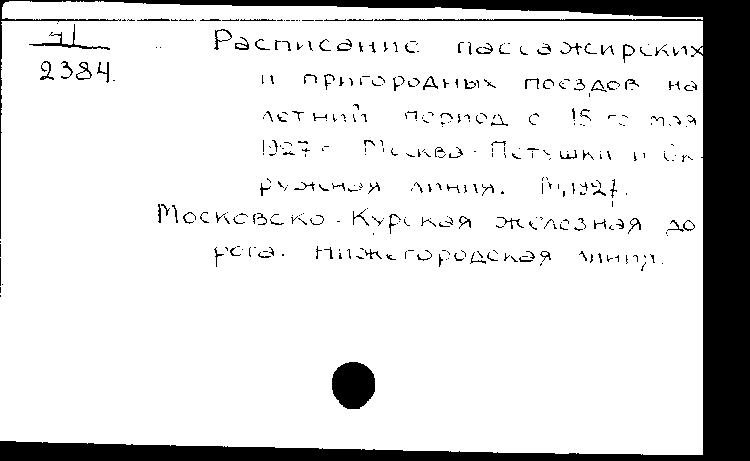 2384.
Расписание пассажирских
и пригородных поездов на
летний период с 15-го мая
1927 г. Москва-Петушки и Ок-
ружная линия. М, 1927.
Московско-Курская железная до
рога. Нижегородская линия.